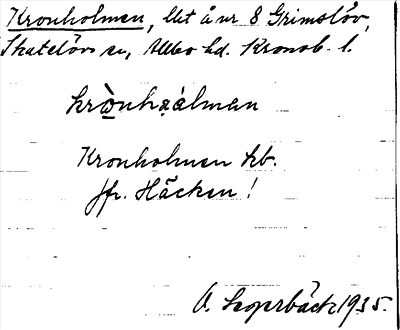 Kronholmen, lht å nr 8 Grimslöv,
Skatelövs sn, Allbo hd. Kronob. l.
krònhɑ̣álman
Kronholmen hb.
jfr. Häcken!
1935.